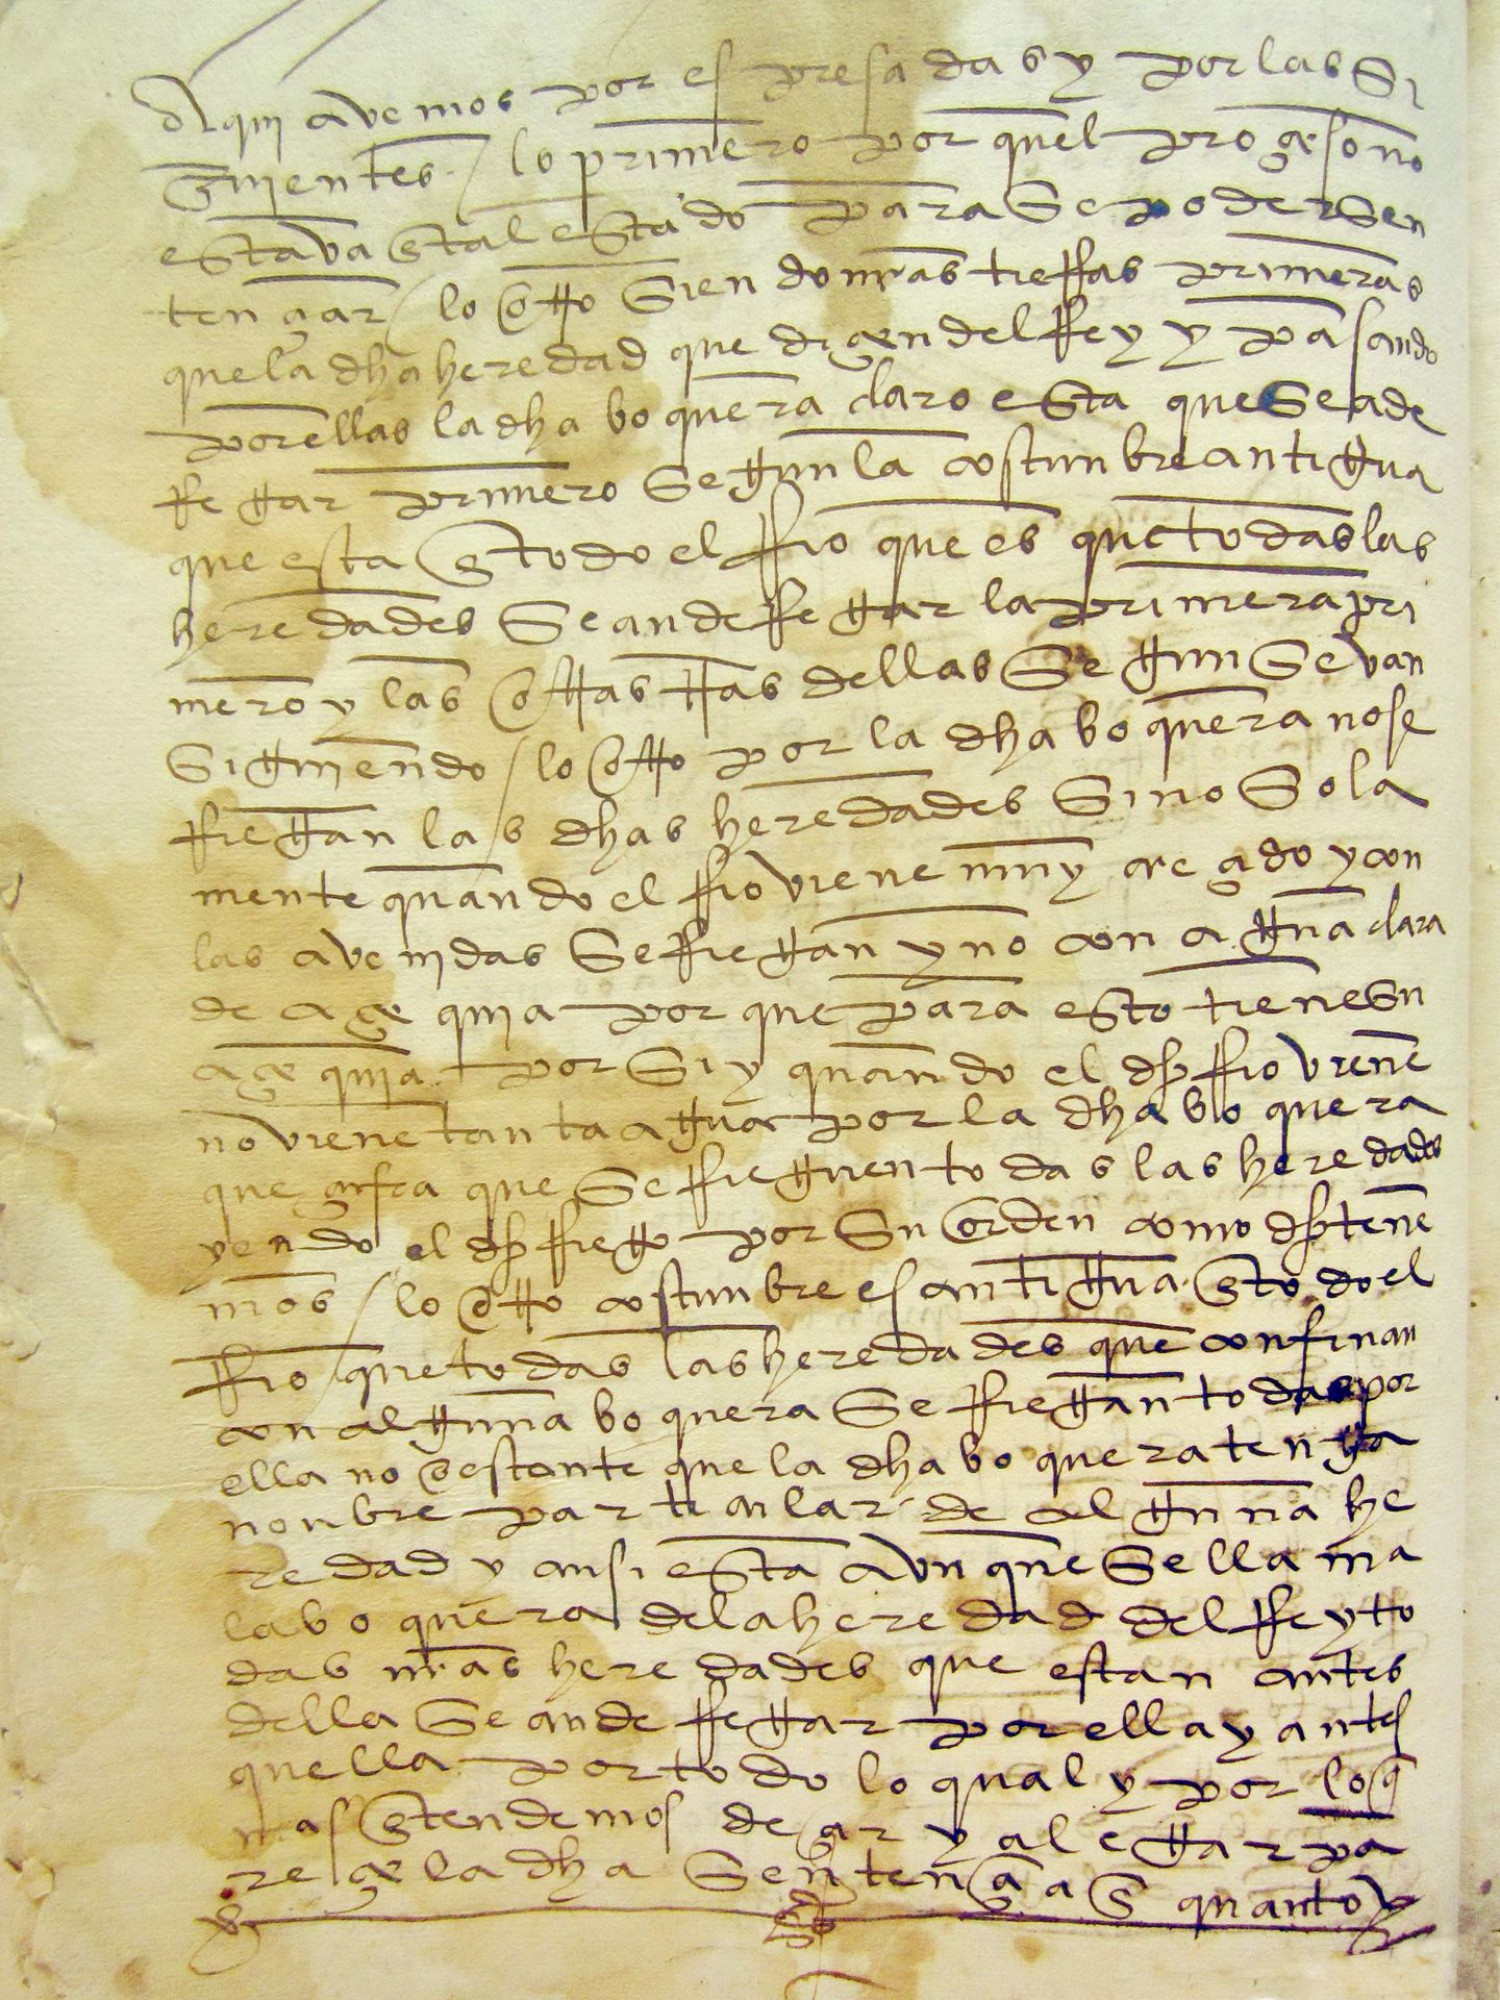 Aqui avemos por espresadas y por las si
guientes / lo primero por quel proçeso no
estava en tal estado para se poder sen
tençiar / lo otro siendo nras tierras primeras
que la dha heredad que diçen del Rey y pasando
por ellas la dha boquera claro esta que se a de
rregar primero segun la costunbre antigua
que esta en todo el rrio que es que todas las
heredades se an de rregar la primera pri
mero y las otras tras dellas segun se van
siguiendo / lo otro por la dha boquera no se
rriegan las dhas heredades sino sola
mente quando el rrio viene muy creçido y con
las avenidas se rriegan y no con agua clara
de açequia por que para esto tiene su
açequia por si y quando el dho rrio viene
no viene tanta agua por la dha boquera
que çufra que se rrieguen todas las heredades
yendo el dho rriego por su orden como dho tene
mos / lo otro costunbre es antigua en todo el
rrio que todas las heredades que confinan
con alguna boquera se rriegan todas por
ella no ostante que la dha boquera tenga
nonbre particular de alguna he
redad y ansi esta aunque se llama
la boquera de la heredad del Rey to
das nras heredades que estan antes
della se an de rregar por ella y antes
quella por todo lo qual y por lo q
mas entendemos deçir y alegar pa
reçe la dha sentençia en quanto